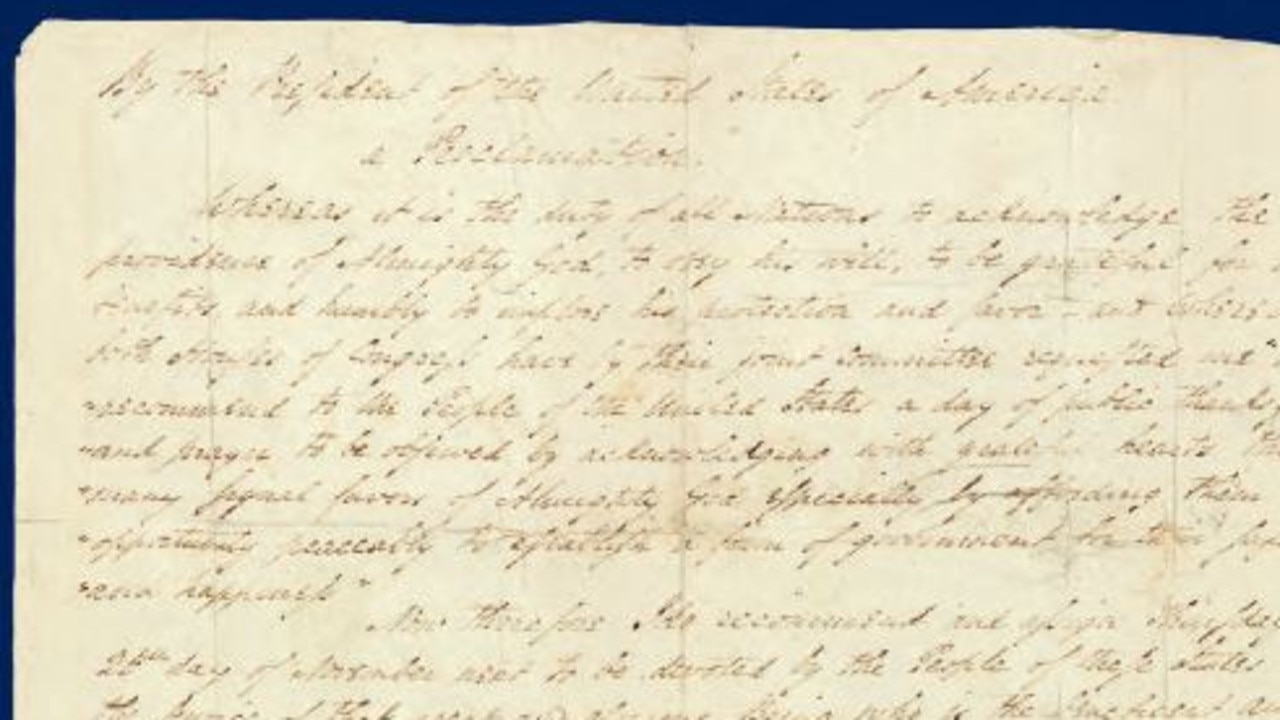 By the President of the United States of America
a Proclamation.
Whereas it is the duty of all Nations to acknowledge the
providence of Almighty God, to obey his will, to be grateful for
benefits and humbly to implore his protection and favor - and
both Houses of Congress have by their joint Committee requested me "
recommend to the People of the United States a day of public
and prayer to be observed by acknowledging with grateful hearts
many signal favors of Almighty God especially by affording them
opportunity peaceably to establish a form of government for their
and happiness"
Now therefore I do recommend and assign
26th day of November next to be devoted by the People of these States
the service of that great and glorious Being who is the